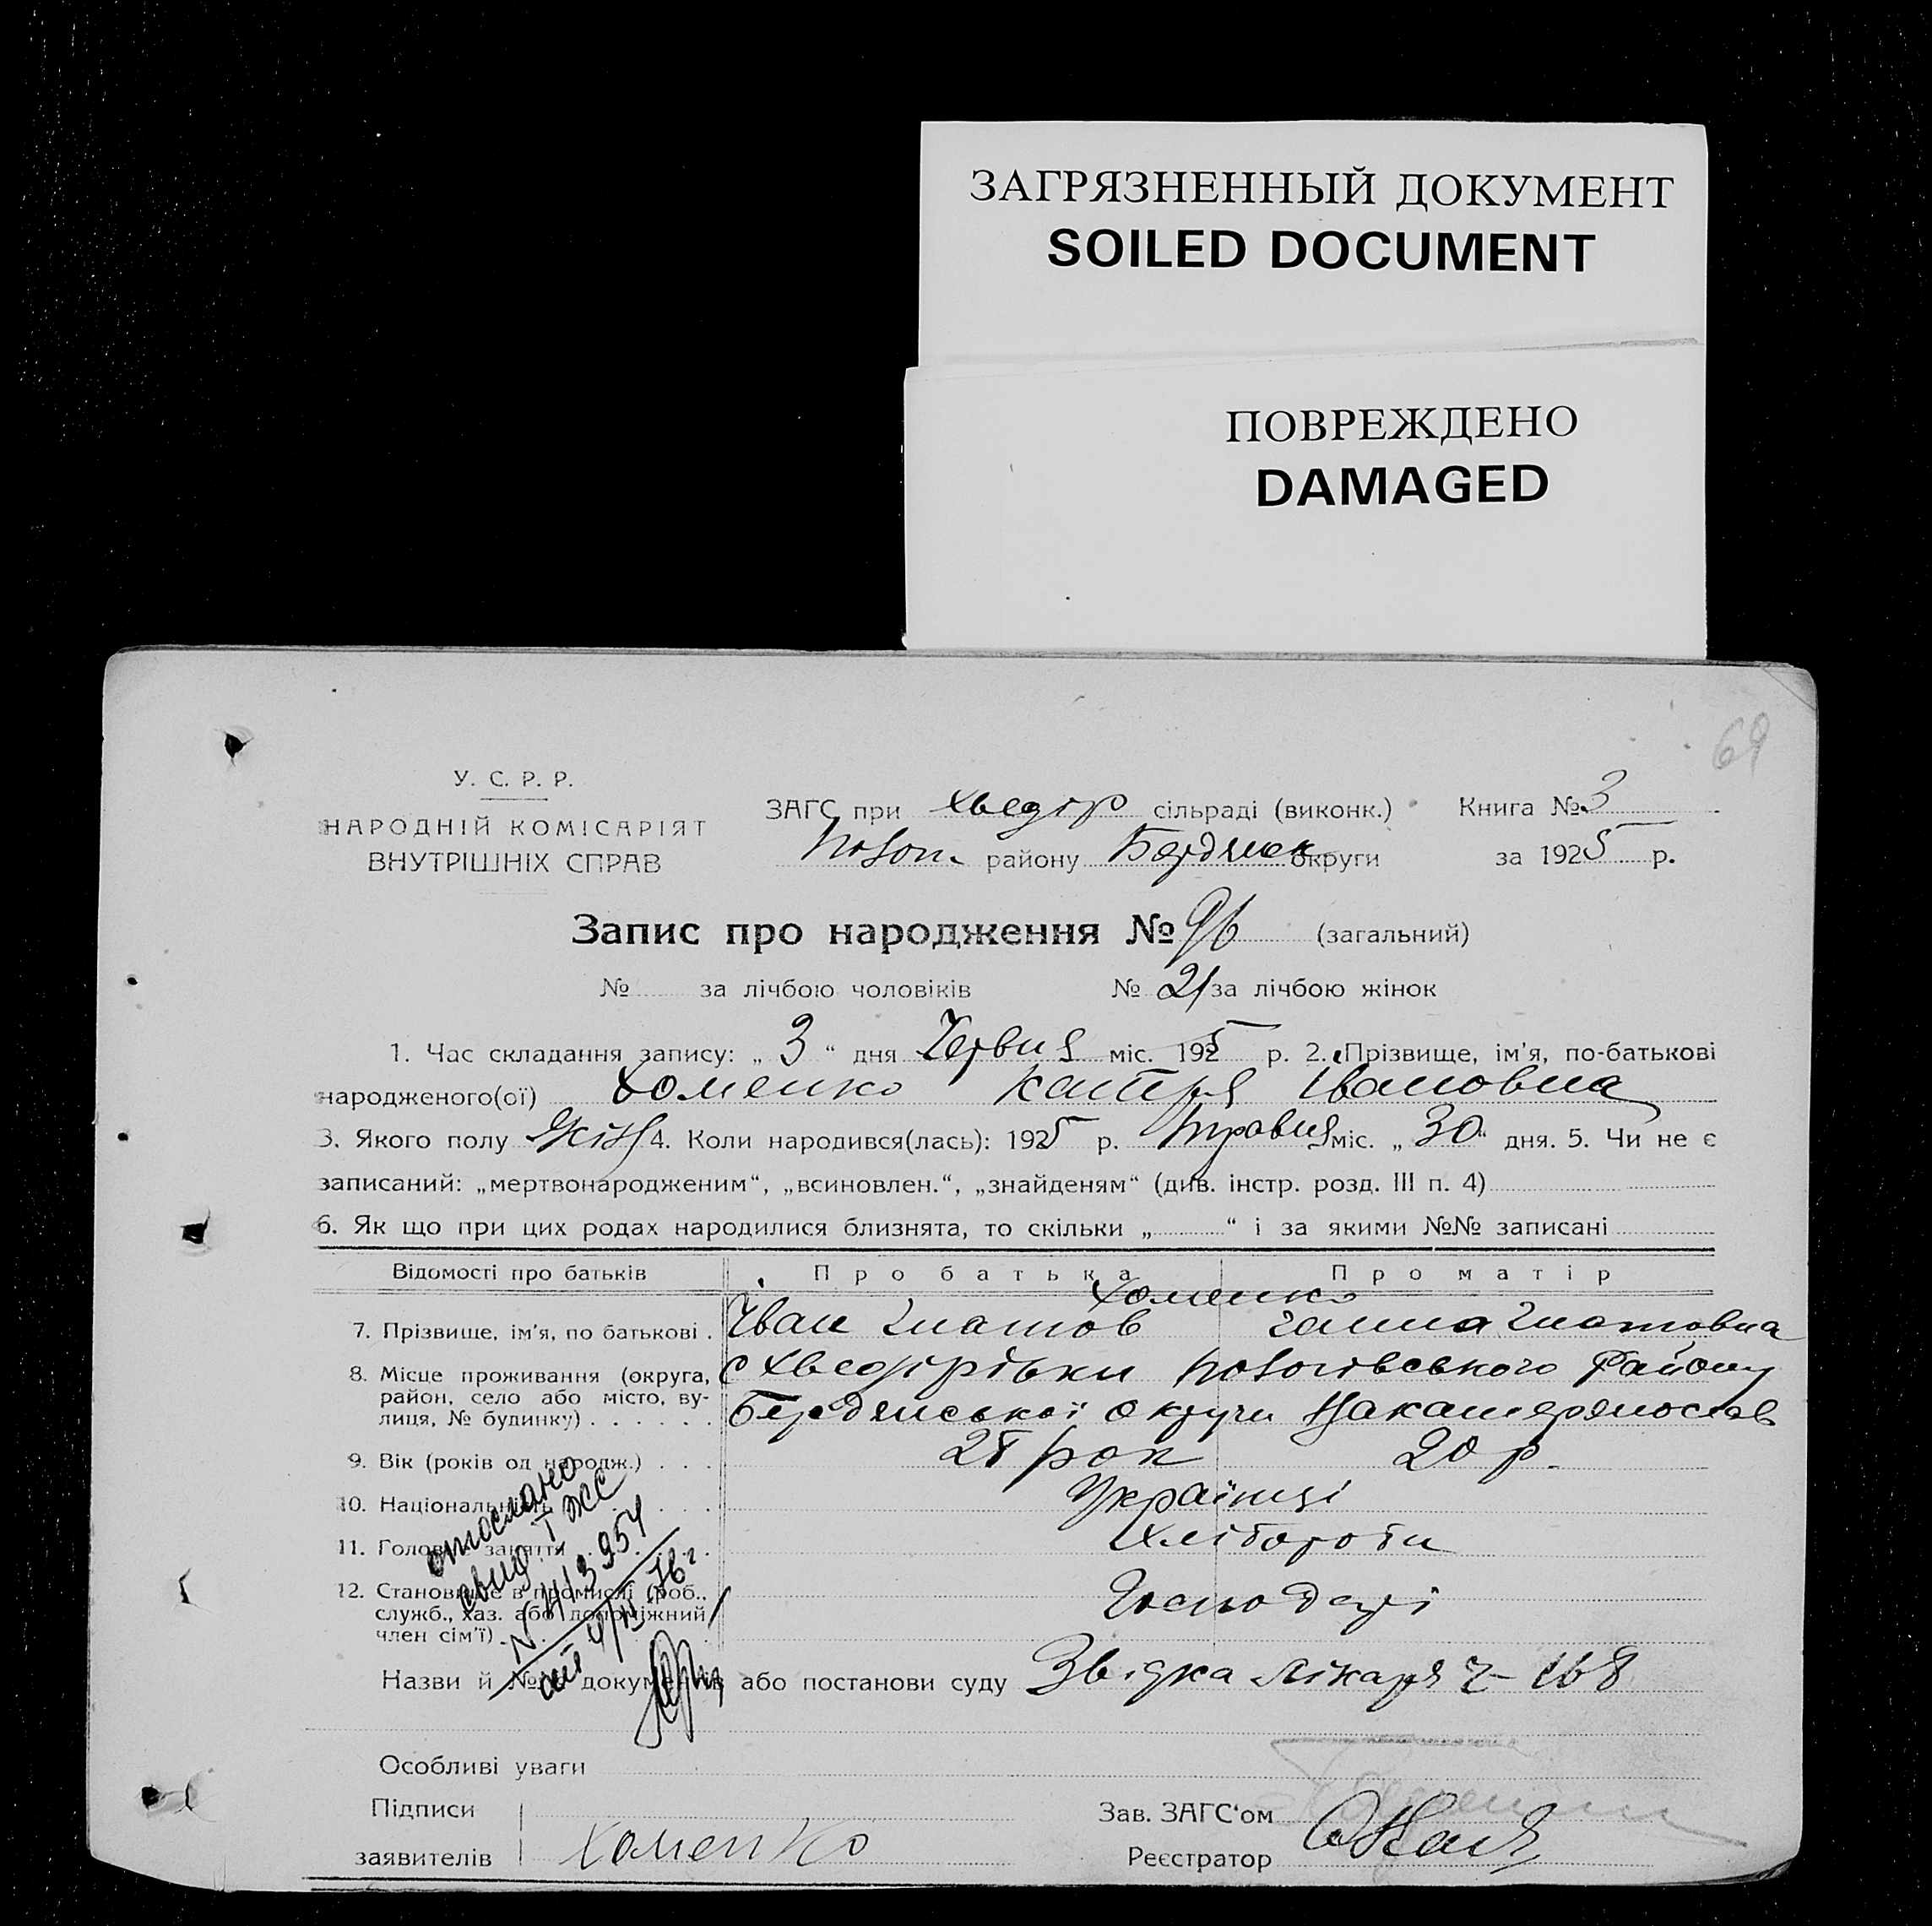 ЗАГРЯЗНЕННЫЙ ДОКУМЕНТ
SOILED DOCUMENT
ПОВРЕЖДЕНО
DAMAGED
69
У. С. Р. Р.
НАРОДНІЙ КОМІСАРІЯТ
ВНУТРІШНІХ СПРАВ
ЗАГС при Хведір сільраді (виконк.) Книга № 3
району Бердянск округи за 1925 р.
Запис про народження № 96 (загальний)
№ за лічбою чоловіків № 21 за лічбою жінок
1. Час складання запису: „ 3 “ дня Червня міс. 1925 р. 2. Прізвище, ім'я, по-батькові
народженого(ої) Хоменко Катря Івановна
3. Якого полу жін 4. Коли народився(лась): 1925 р. Травня міс. „ 30 “ дня. 5. Чи не є
записаний: „мертвонародженим“, „всиновлен.“, „знайденям“ (див. інстр. розд. III п. 4)
6. Як що при цих родах народилися близнята, то скільки „ “ і за якими №№ записані
Відомості про батьків Про батька Про матір
Хоменко
7. Прізвище, ім'я, по батькові . Іван Гнатов Ганна Гнатовна
8. Місце проживання (округа, с Хведірівки Ногогівського Району
район, село або місто, ву-
лиця, № будинку) . . . . . . Бердянської округи
9. Вік (років од народж.) . . . рок 20 р.
10. Національність . . . Українці
11. Головне заняття . . . Хлібороби
12. Становище в промислі (роб., Господарі
служб., хаз. або допоміжний
член сім'ї) .
отослано
свид I ЖС
Назви й №№ документів або постанови суду Звідка лікаря ч- 168
Особливі уваги
Підписи
Зав. ЗАГС'ом
заявителів Хоменко
Реєстратор